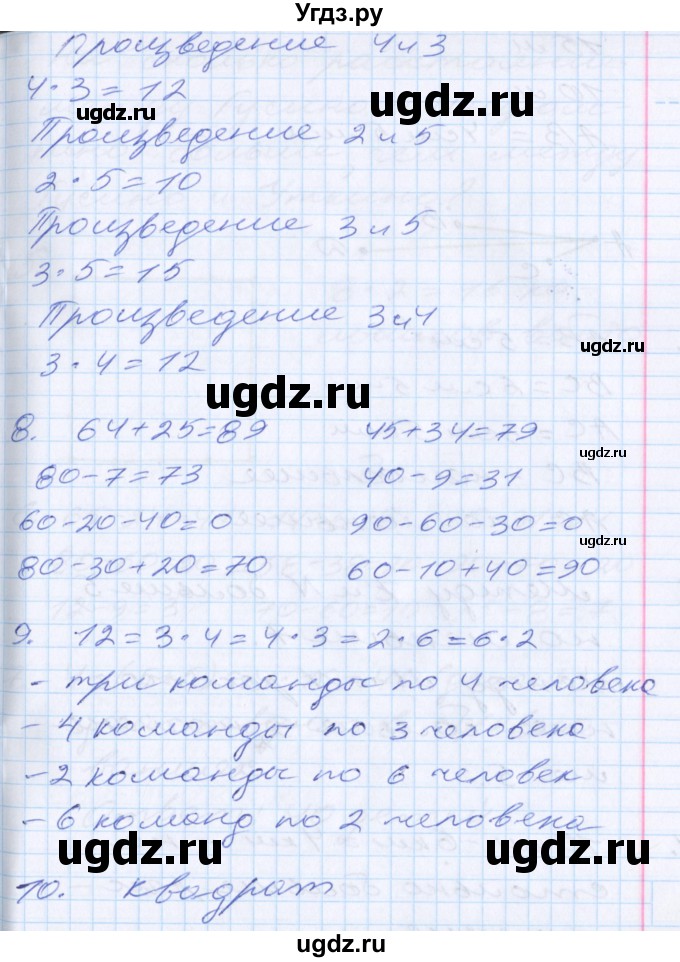 Угдз.ру
Произведение 4 и 3
4·3=12
ugdz.ru
ugdz.ru
Произведение 2 и 5
2·5=10
Произведение 3 и 5
3·5=15
Произведение 3 и 4
ugdz.ru
3·4=12
ugdz.ru
8. 64+25=89 45+34=79
80-7=73 40-9=31
60-20-40=0 90-60-30=0
ugdz.ru
80-30+20=70 60-10+40=90
9. 12=3·4=4·3=2·6=6·2
- три команды по 4 человека
- 4 команды по 3 человека
- 2 команды по 6 человек
- 6 команд по 2 человека
ugdz.ru ugdz.ru
10. квадрат
ugdz.ru
ugdz.ru